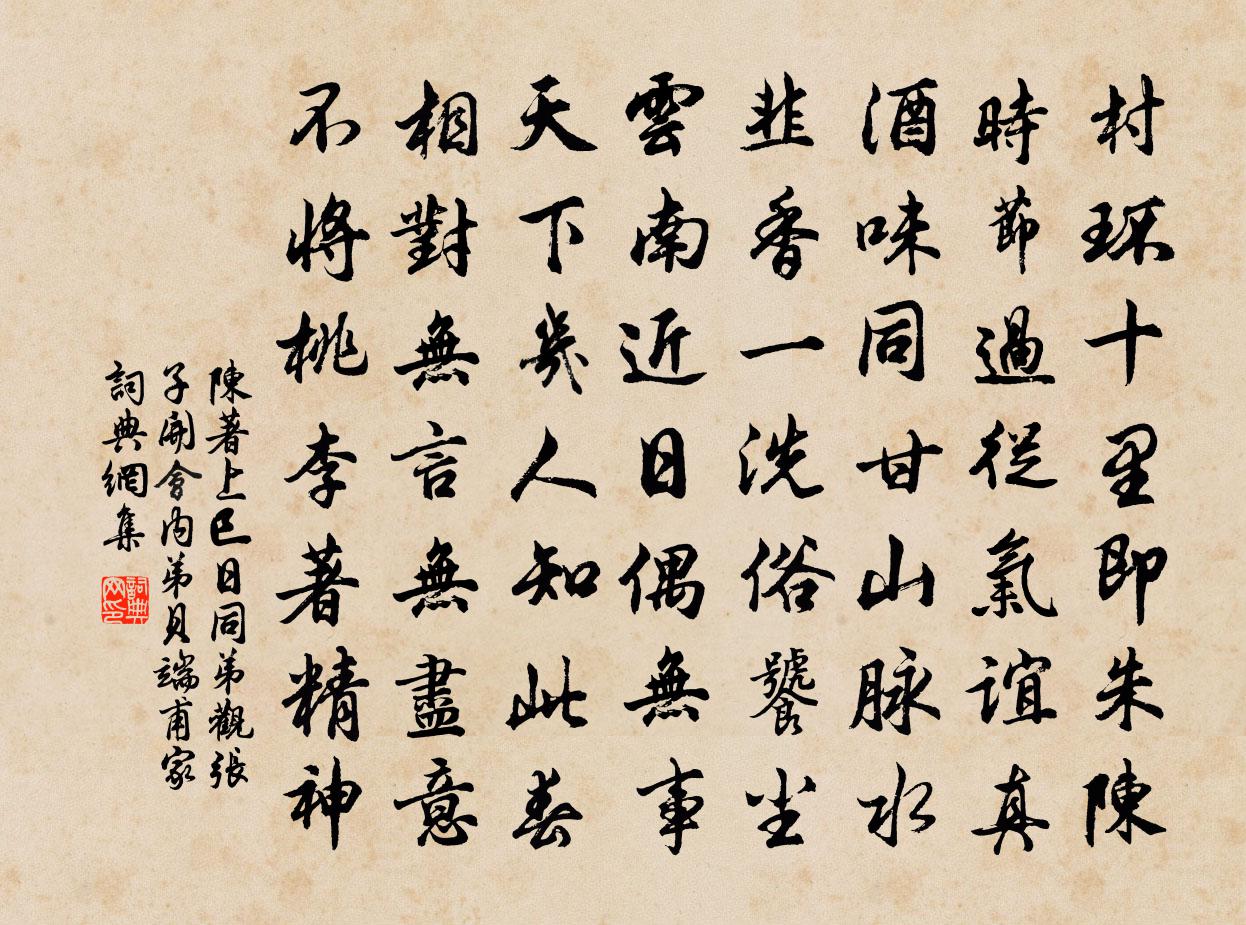 村環十里即朱陳
時節過從氣誼真
酒味同甘山脉水
韭香一洗俗饕塵
雲南近日偶無事
天下幾人知此春
相對無言無盡意
不將桃李著精神
陳著上巳日同弟觀張
子開會內弟貝端甫家
詞典網集
詞典網印